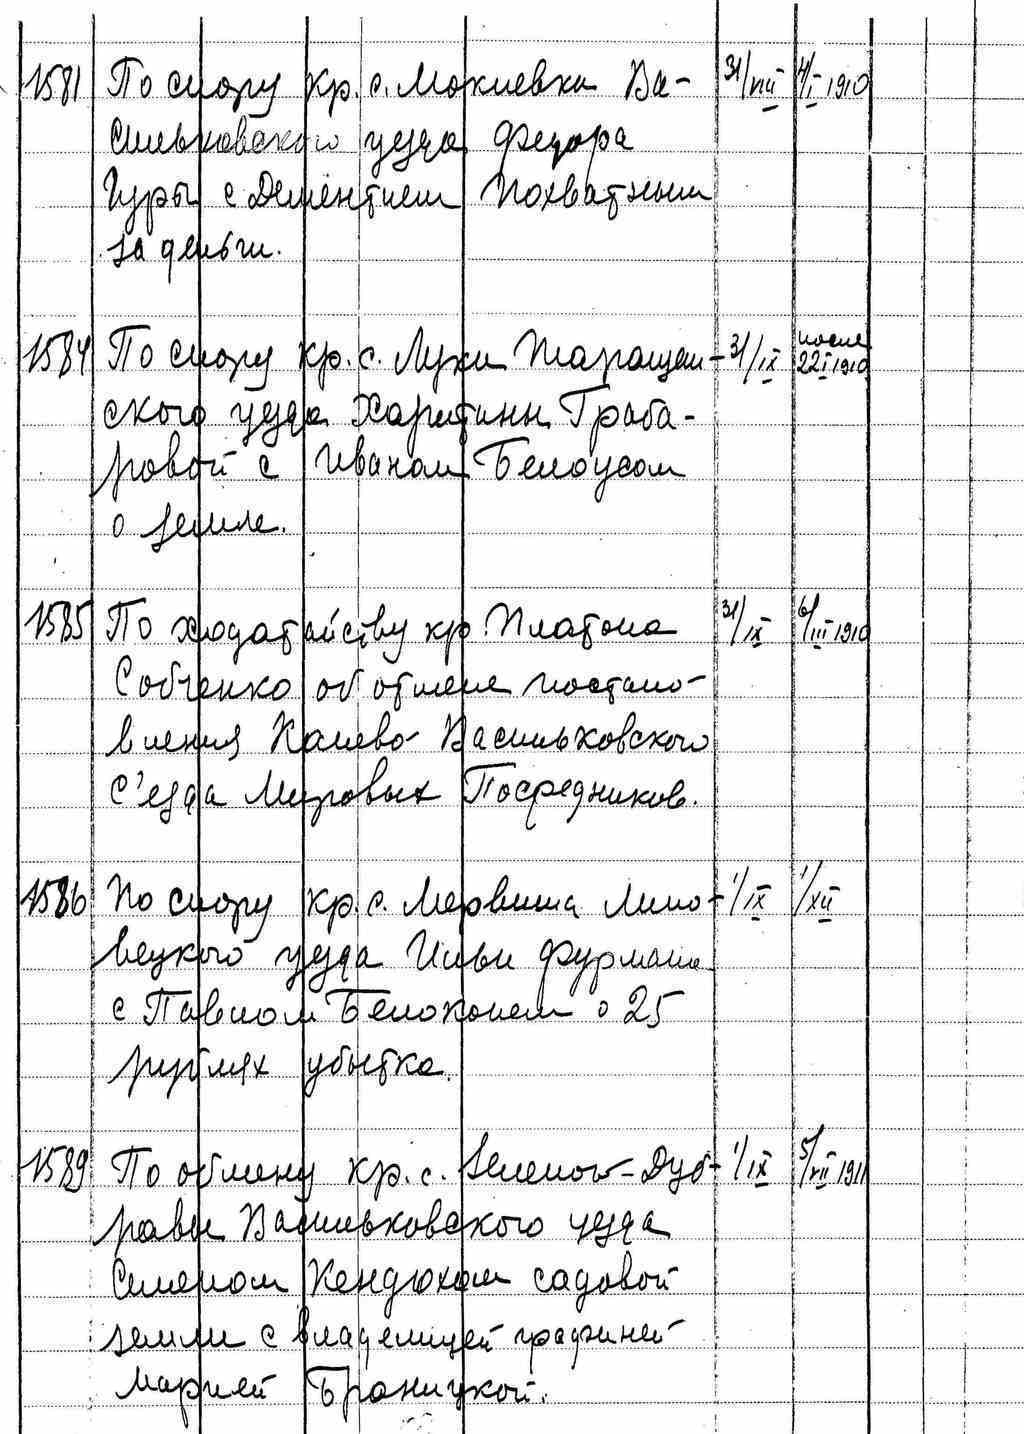 1581 По спору кр. с. Мокиевки Ва- 31/VIII 4/I 1910
сильковского уезда Федора
Гуры с Дементием Похватным
за деньги.
после
1584 По спору кр. с. Луки Таращан- 31/IX 22 I 1910
ского уезда Харитины Граба-
ровой с Иваном Белоусом
о земле.
1585 По ходатайству кр. Платона 31/IX 6/III 1910
Собченко об отмене постано-
вления Канево-Васильковского
с'езда Мировых Посредников.
1586 По спору кр. с. Мервина Липо- 1/IX 1/XII
вецкого уезда Ильи Фурмана
с Павлом Белоконем о 25
рублях убытка.
1589 По обмену кр. с. Зеленой-Дуб- 1/IX 5/VII 1911
равы Васильковского уезда
Семеном Кендюхом садовой
земли с владелицей графиней
Марией Браницкой.